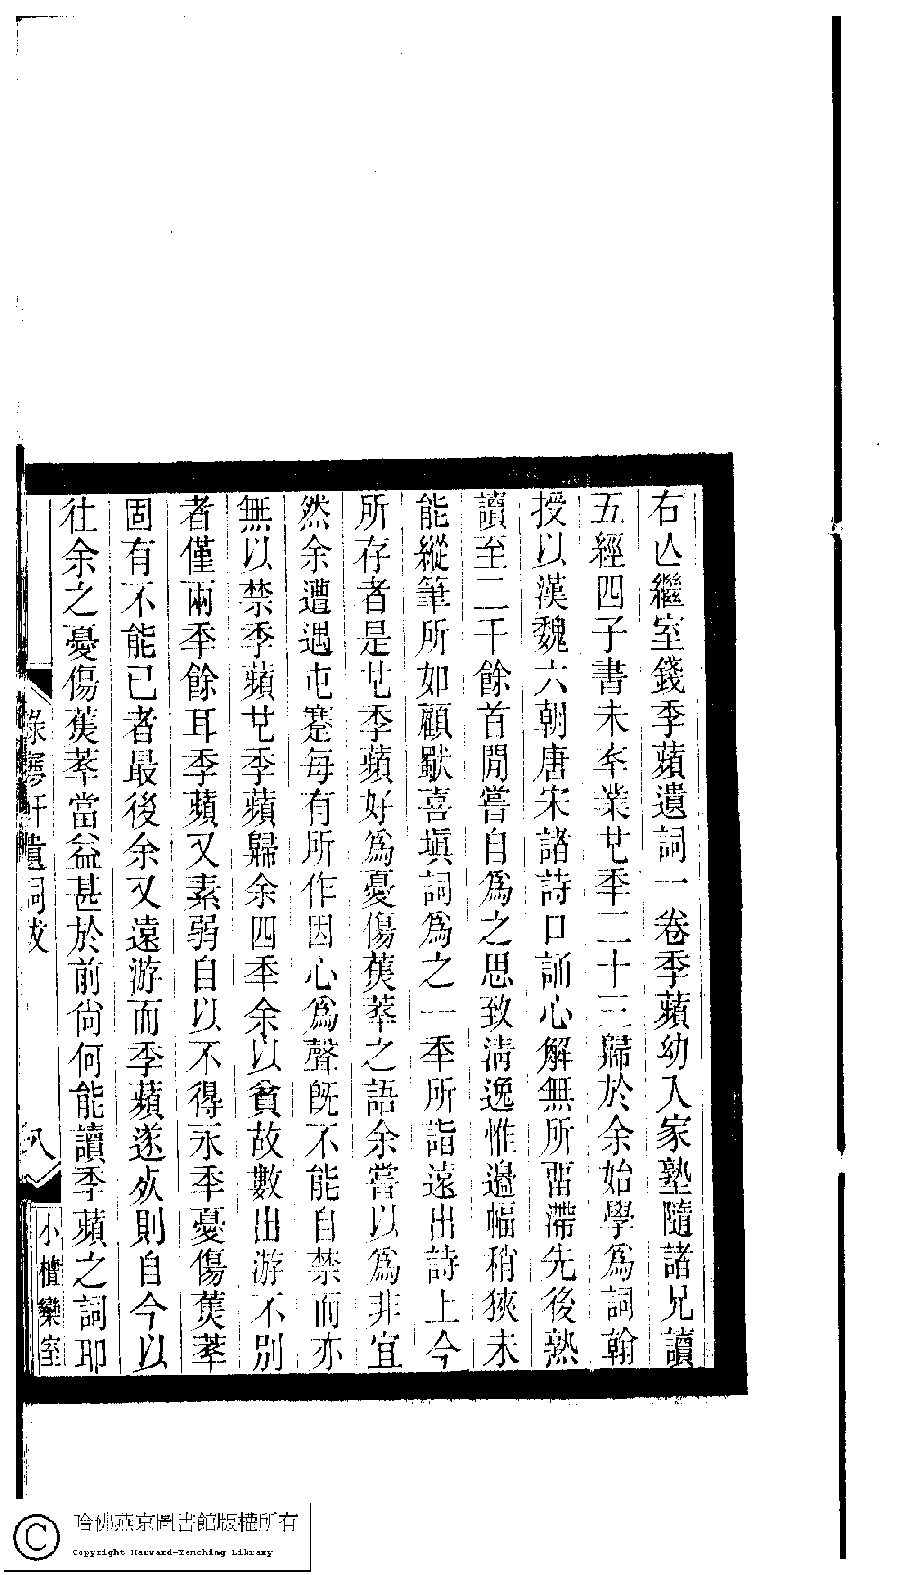 右亾繼室錢季蘋遺詞一卷季蘋幼入家塾隨諸兄讀
五經四子書未卒業也秊二十三歸於余始學爲詞翰
授以漢魏六朝唐宋諸詩口誦心解無所畱滯先後熟
讀至二千餘首閒嘗自爲之思致淸逸惟邊幅稍狹未
能縱筆所如顧獃喜塡詞爲之一秊所詣遠出詩上今
所存者是也季蘋好爲憂傷蕉萃之語余嘗以爲非宜
然余遭遇屯蹇每有所作因心爲聲旣不能自禁而亦
無以禁季蘋也季蘋歸余四秊余以貧故數出游不別
者僅兩秊餘耳季蘋又素弱自以不得永秊憂傷蕉萃
固有不能已者最後余又遠游而季蘋遂夗則自今以
往余之憂傷蕉萃當益甚於前尙何能讀季蘋之詞耶
軒遺詞跋
八
小檀欒室
哈佛燕京圖書館版權所有
Copyright Harvard-Yenching Library